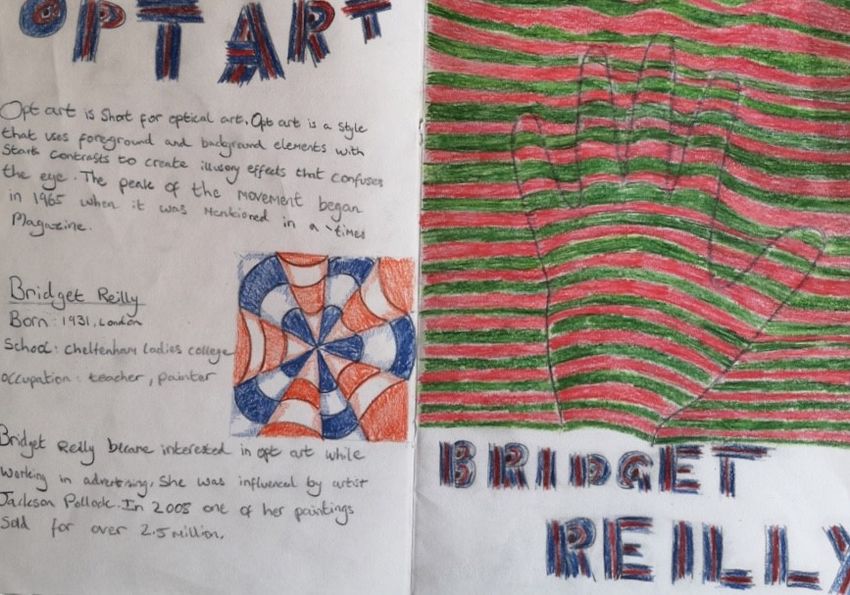 OPT ART
Opt art is short for optical art. Opt art is a style
that uses foreground and background elements with
stark contrasts to create illusory effects that confuses
the eye. The peak of the movement began
in 1965 when it was mentioned in a times
Magazine.
Bridget Reilly
Born: 1931, London
School: Cheltenham Ladies college
occupation: teacher, painter
Bridget Reilly became interested in opt art while
working in advertising. She was influenced by artist
Jackson Pollock. In 2008 one of her paintings
sold for over 2.5 million.
BRIDGET
REILLY